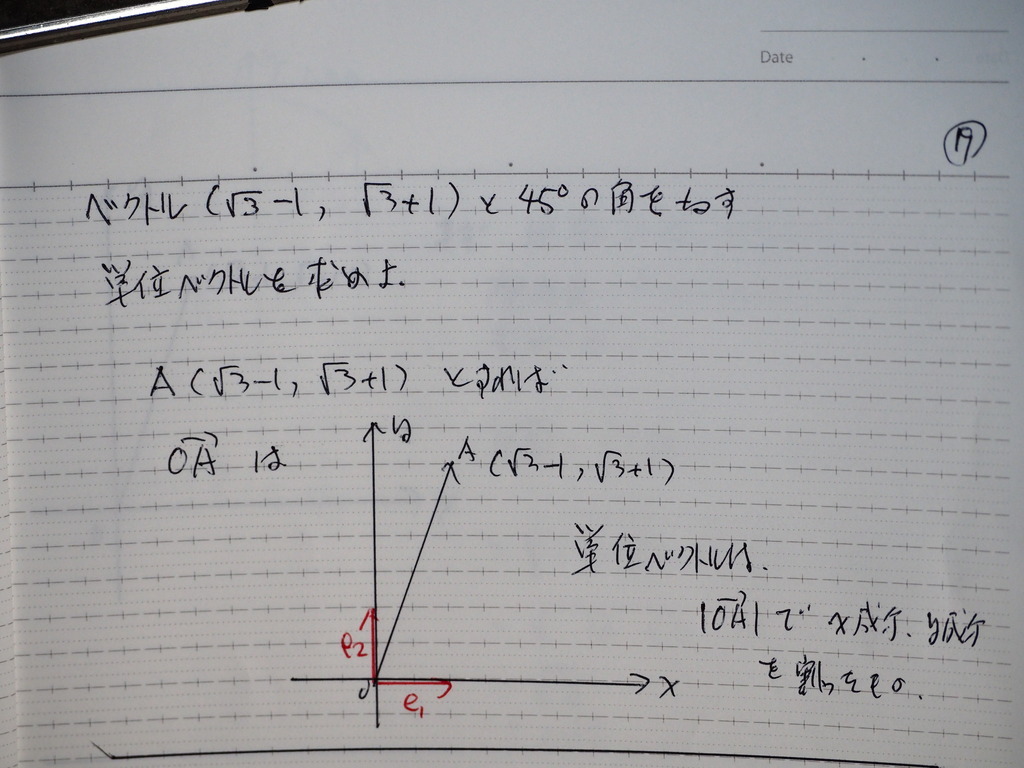 Date
19
ベクトル (√3-1, √3+1) と 45° の角をなす
単位ベクトルを求めよ.
A (√3-1, √3+1) とすれば
OA→ は
y
A (√3-1, √3+1)
単位ベクトルは、
|OA→| で x成分、y成分
を割ったもの.
e2
O
e1
x